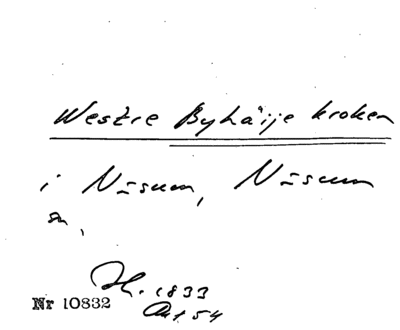 Westre Byhäije kroken
i Näsum, Näsum
sn,
H. 1833
Nr 10832
54